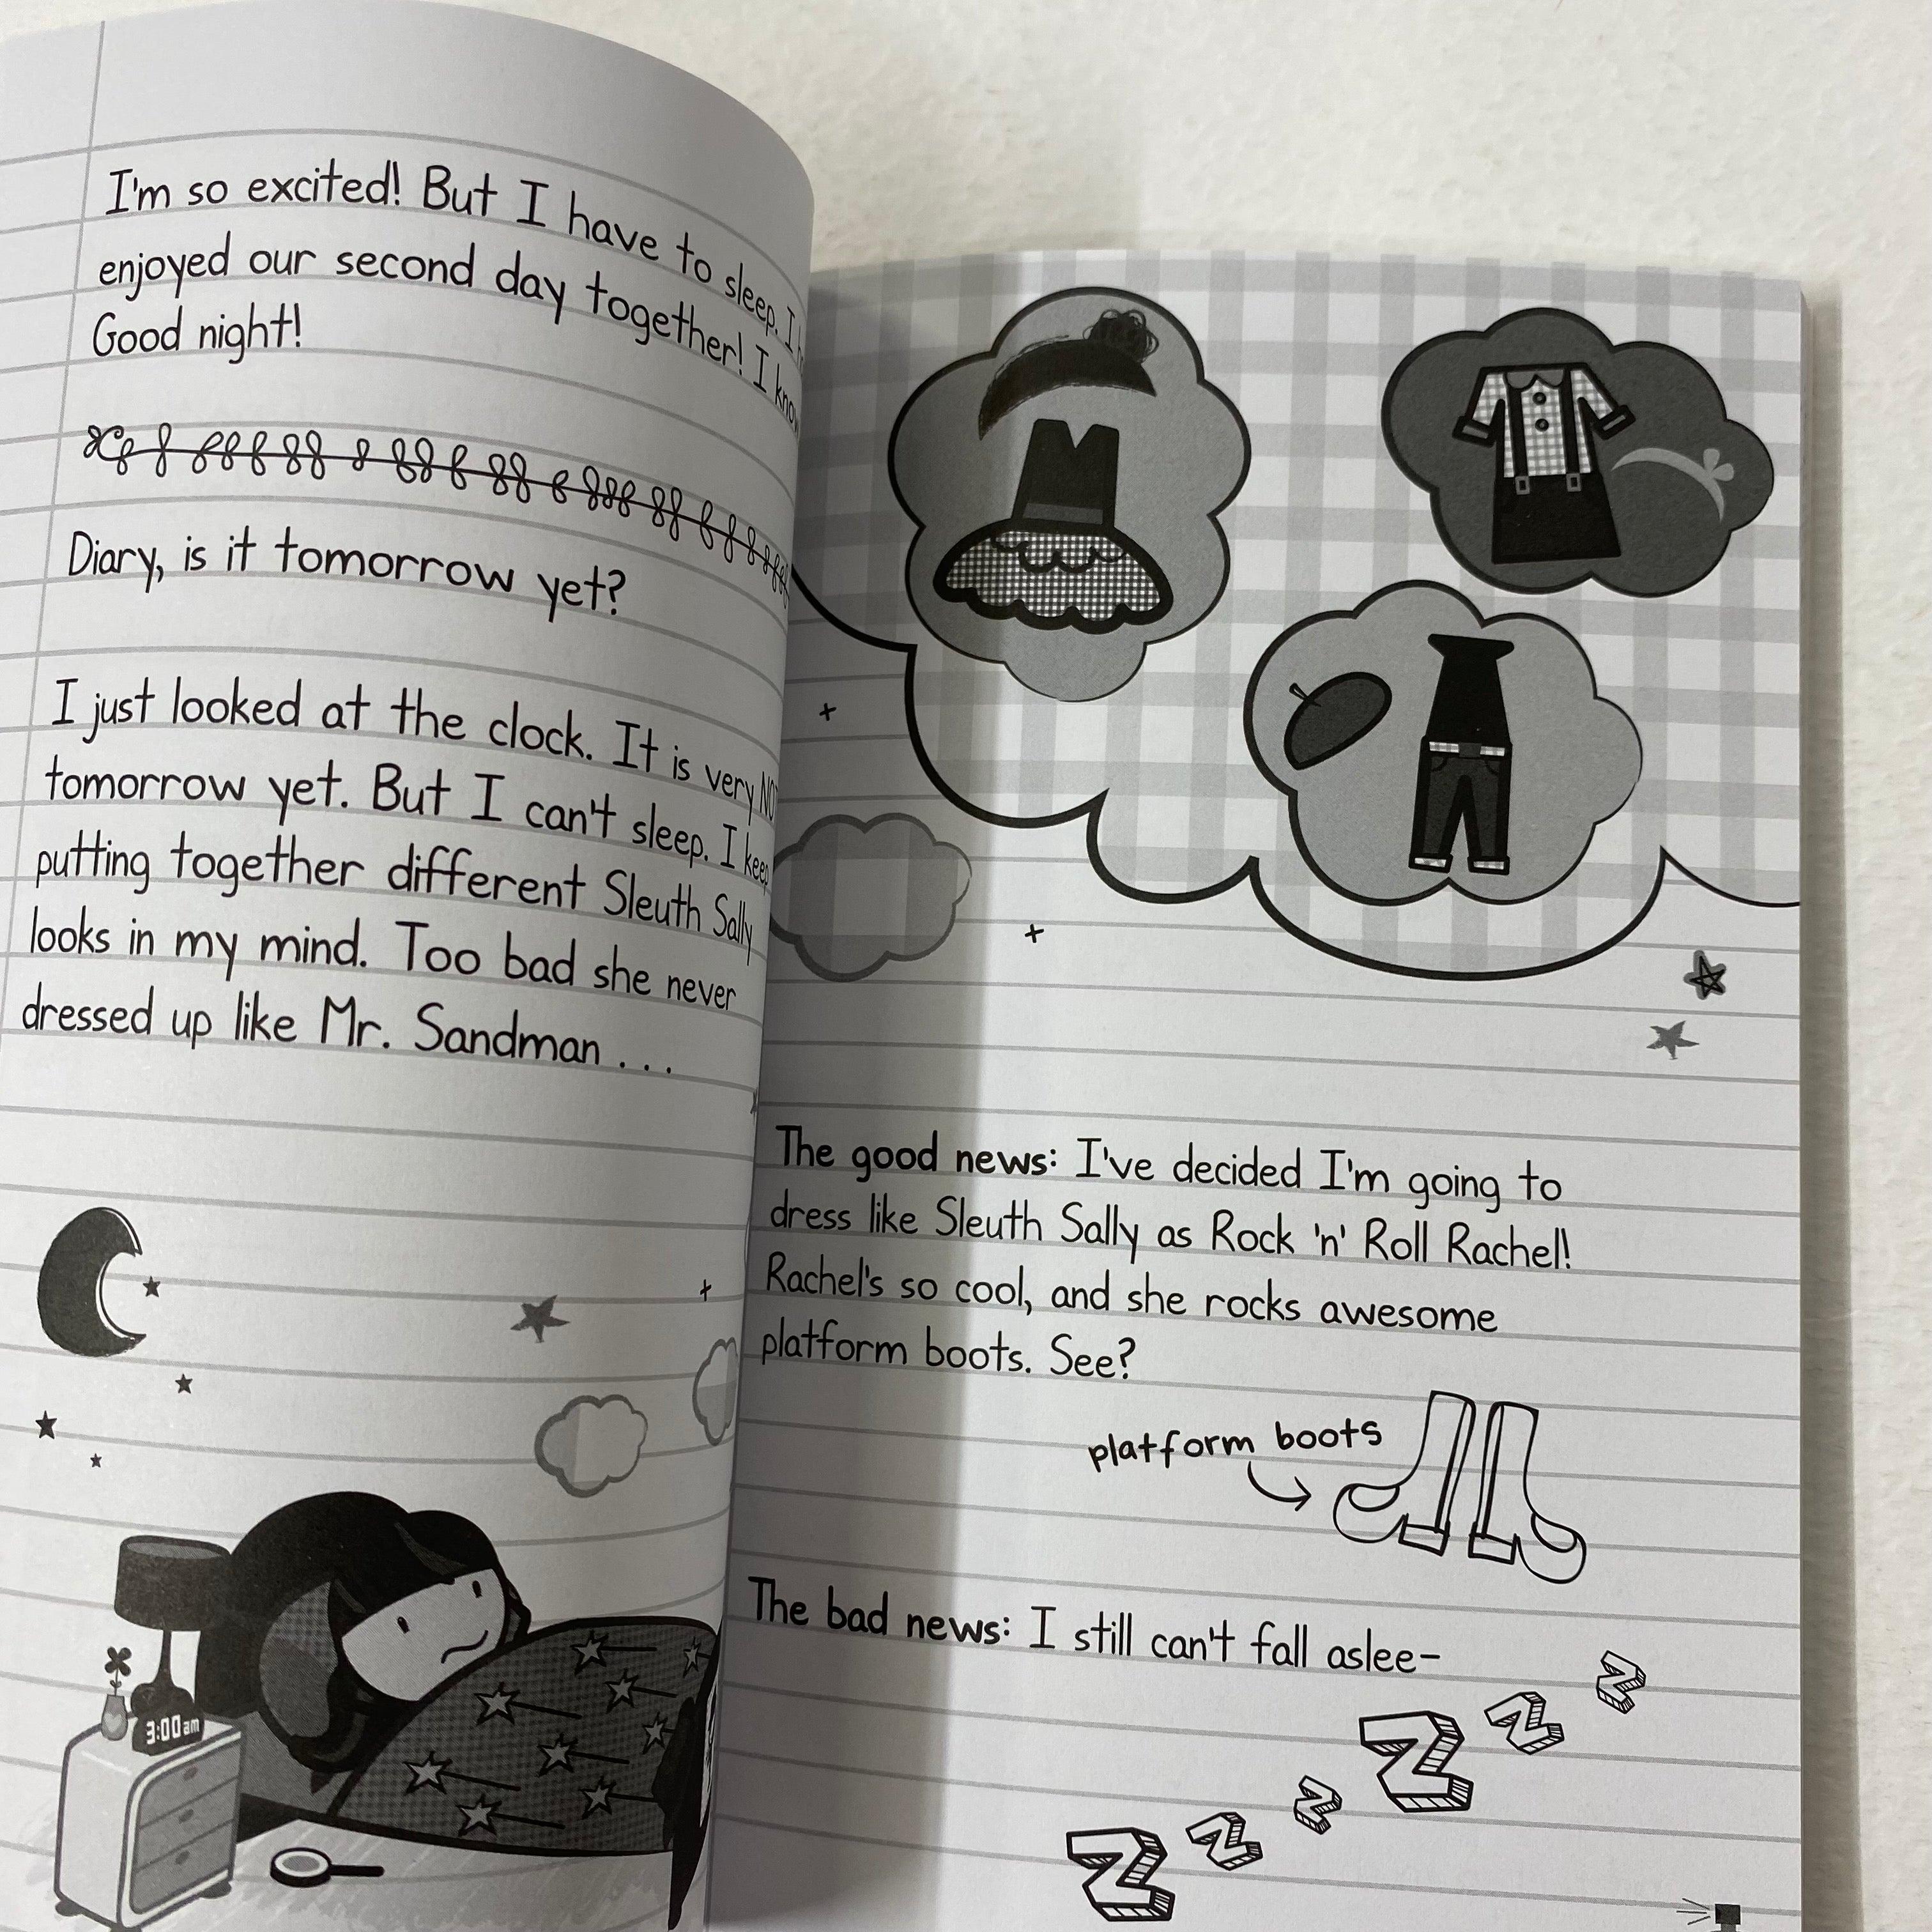 I'm so excited! But I have to sleep. I
enjoyed our second day together! I know
Good night!
Diary, is it tomorrow yet?
I just looked at the clock. It is very
tomorrow yet. But I can't sleep. I keep
putting together different Sleuth Sally
looks in my mind. Too bad she never
dressed up like Mr. Sandman . . .
3:00 am
The good news: I've decided I'm going to
dress like Sleuth Sally as Rock 'n' Roll Rachel!
Rachel's so cool, and she rocks awesome
platform boots. See?
platform boots
The bad news: I still can't fall aslee-
z z z z z z